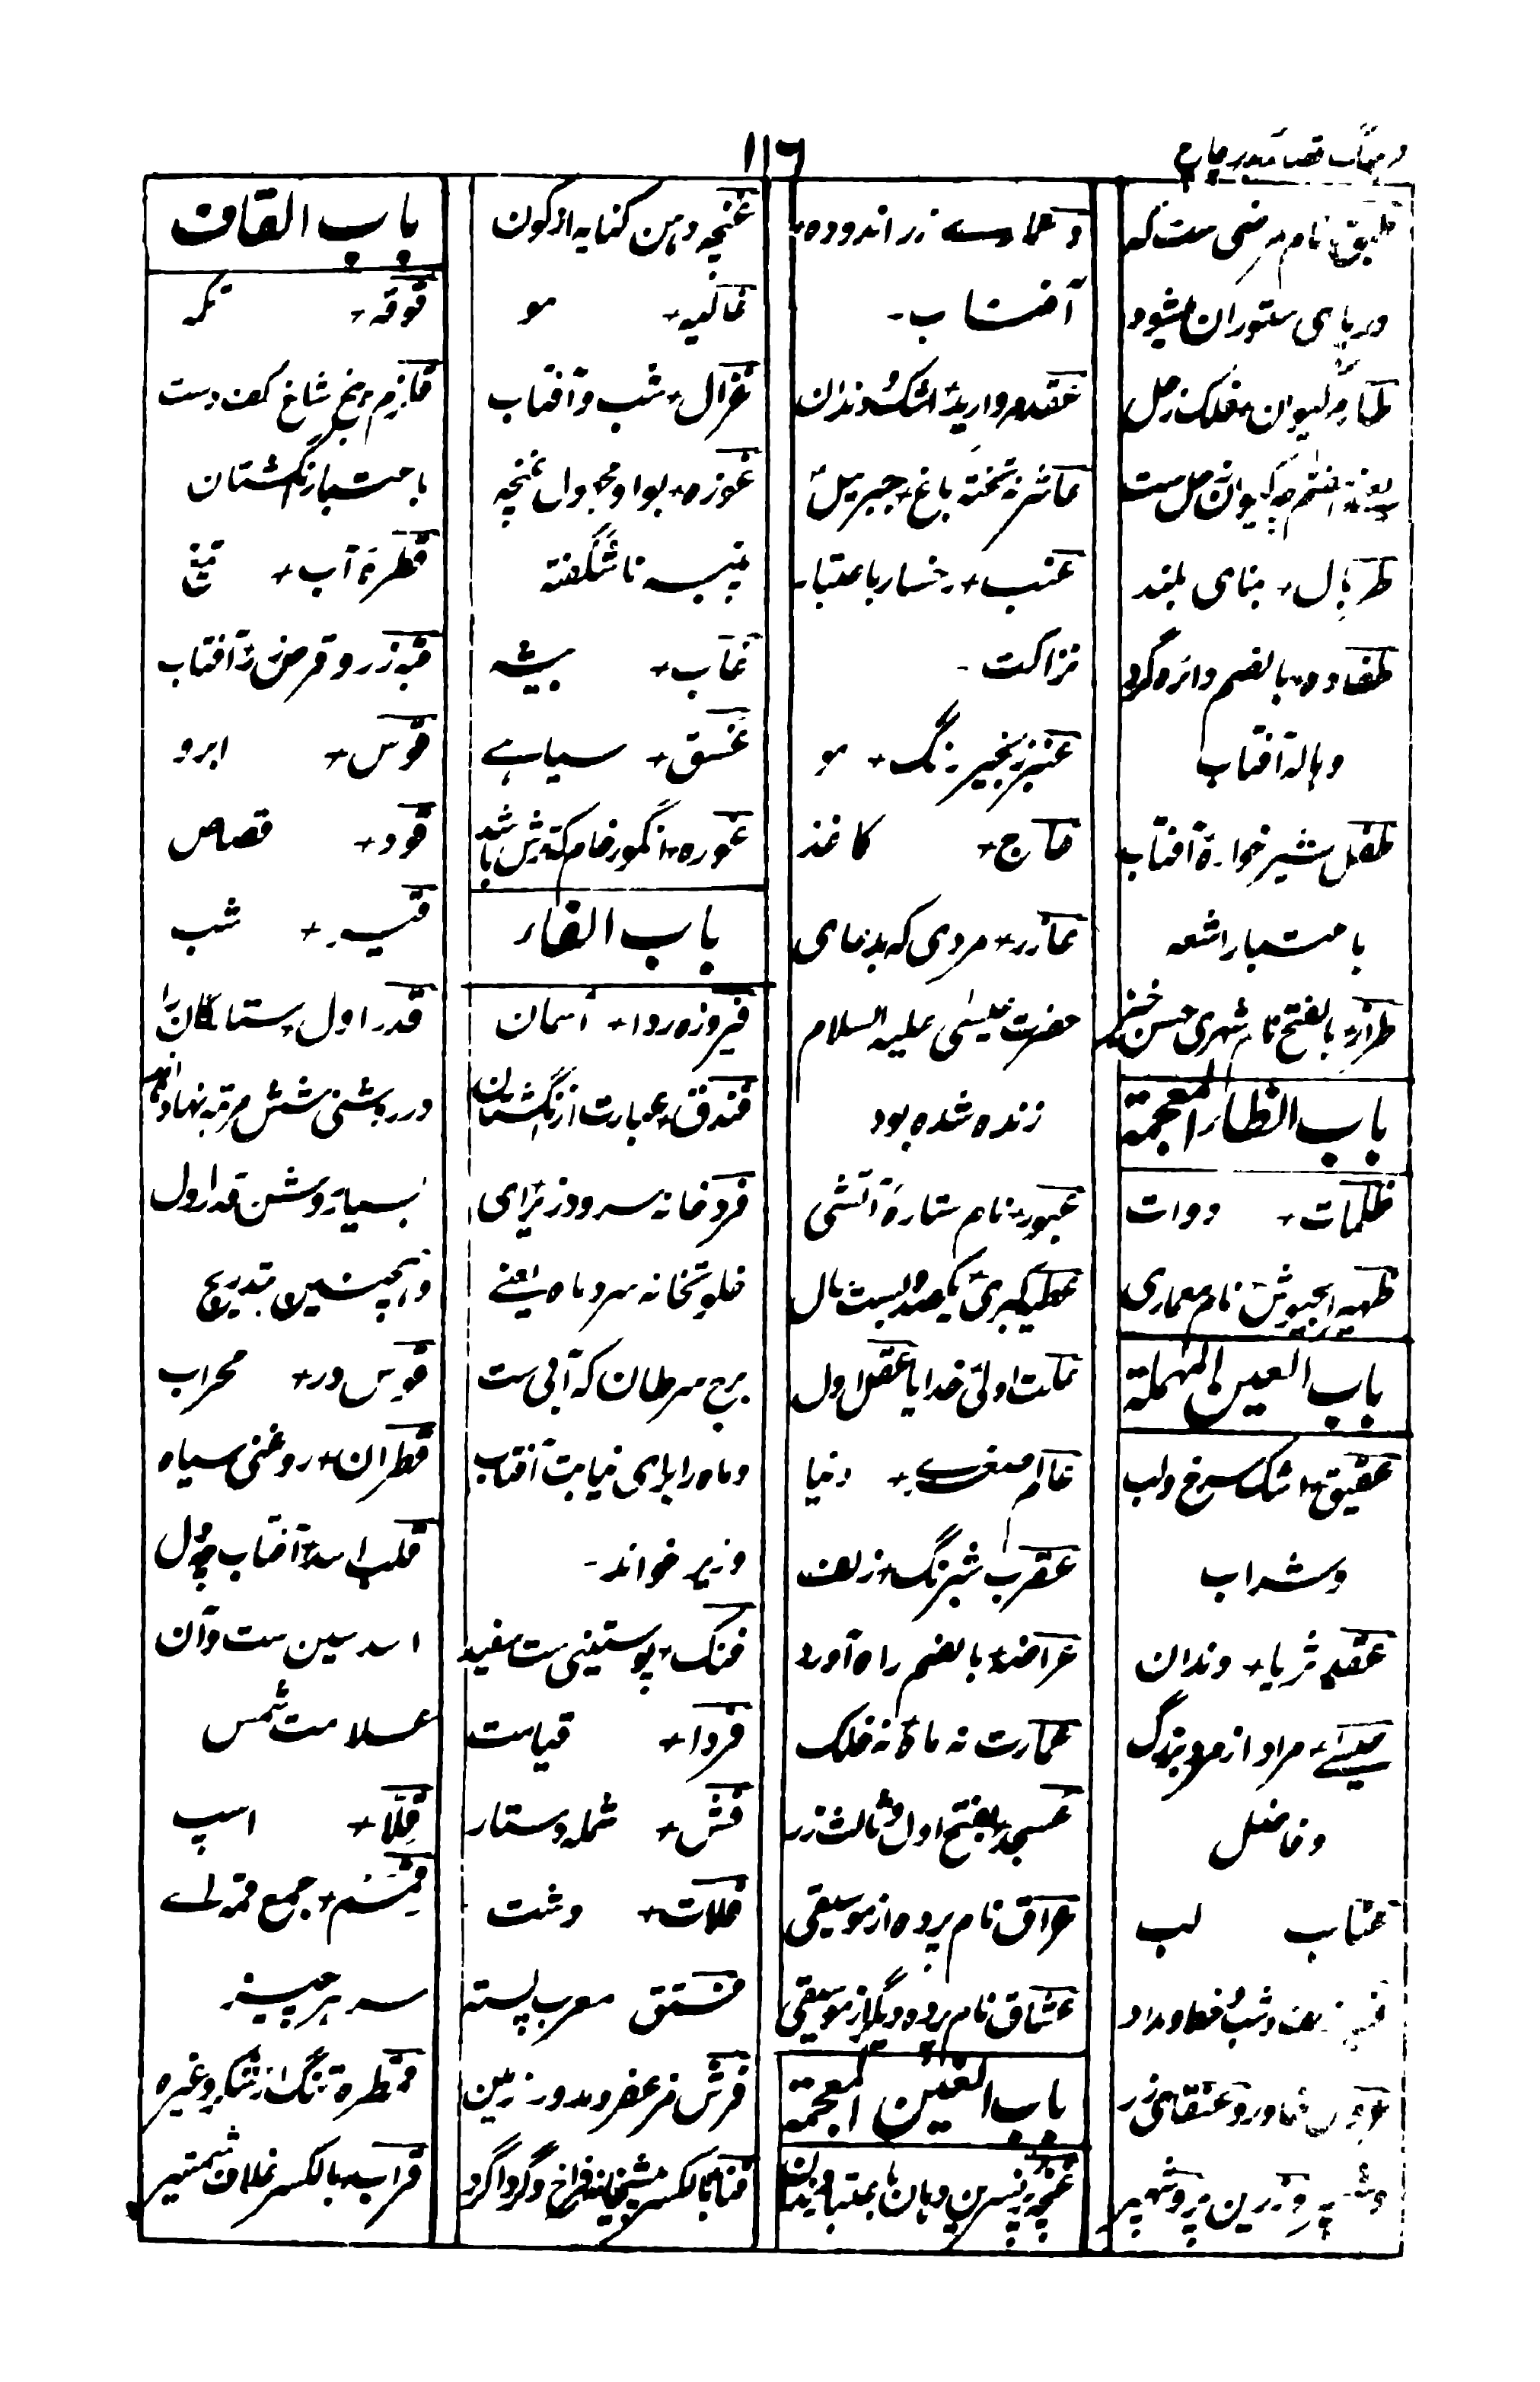 فرہنگ قصائد بدر چاچ
۱۱۶
طبق+ نام مرضی ست کہ
در پای ستوران میشود
طارم کیوان+ فلک زحل
یعنی ہفتم چہ کیوان زحل ست
طربال+ بنای بلند
طفاوہ+ بالضم دائرہ گرد
وہالہ آفتاب
طفل شیرخوارہ آفتاب
باعتبار اشعہ
طراز+ بالفتح نام شہری حسن خیز
باب الظاء المعجمة
ظلمات+ دوات
ظہیر الجیوش نام معماری
باب العین المہملة
عقیق+ اشک سرخ ولب
وشراب
عقد ثریا+ دندان
عیسے+ مراد از مرد بزرگ
وفاضل
عناب لب
وشب خط و مداد
وعنقای زر
زرین پر وشہپر
وعماری زر اندودہ+
آفتاب-
عقد مروارید+ اشک ودندان
عاشر نہ تختہ باغ+ جبریل
عنب+ رخسار باعتبار
نزاکت-
عنبر زنجیر رنگ+ مو
عاج+ کاغذ
عازر+ مردی کہ بدعای
حضرت عیسیٰ علیہ السلام
زندہ شدہ بود
عبور+ نام ستارہ آتشی
عطیہ کبریٰ یکصد وبست سال
علت اولیٰ خدا یا عقل اول
عالم صغرے+ دنیا
عقرب شبرنگ+ زلف
عراضہ+ بالضم راہ آورد
عمارت نہ مانہ فلک
عسجد+ بفتح اول وثالث زر
عراق نام پردہ از موسیقی
عشاق نام پردہ دیگر از موسیقی
باب الغین المعجمة
غنچہ نسرین دہان باعتبار دندان
غنچہ دہن کنایہ از کون
غالیہ+ مو
غزال+ شب وآفتاب
غوزہ+ بواو مجہول غنچہ
پنبہ ناشگفتہ
غاب+ بیشہ
غسق+ سیاہے
غورہ+ انگور خام کہ ترش باشد
باب الفاء
فیروزہ ردا+ آسمان
فندق+ عبارت از انگشتان
فرد خانہ سرود زیرای
خلوتخانہ سرد ماہ یعنے
برج سرطان کہ آبی ست
وماہ را برای نیابت آفتاب
وزیر خواند-
فنک+ پوستینی ست سفید
فردا+ قیامت
فش+ شملہ دستار
فلات+ دشت
فستق معرب پستہ
فرش مزعفر ومدور زمین
فنا+ بالکسر پیشخانہ فراخ وگرداگرد
باب القاف
قوقہ+ تکمہ
قلزم پنج شاخ کف دست
باعتبار انگشتان
قطرہ آب+ تیغ
قبہ زر وقرص زر+ آفتاب
قوس+ ابرو
قود+ قصاص
قیر+ شب
قدر اول+ ستارگان را
در روشنی شش مرتبہ نہادہ اند
بسیار روشن قدر اول
وہمچنین بتدریج
قوس در+ محراب
قطران+ روغنی سیاہ
قلب اسد+ آفتاب چہ دل
اسد سین ست وآن
علامت شمس
قلا+ اسپ
قمم+ جمع قمہ اے
سر ہر چیز
قنطرہ تنگ از شکر وغیرہ
قراب+ بالکسر غلاف شمشیر